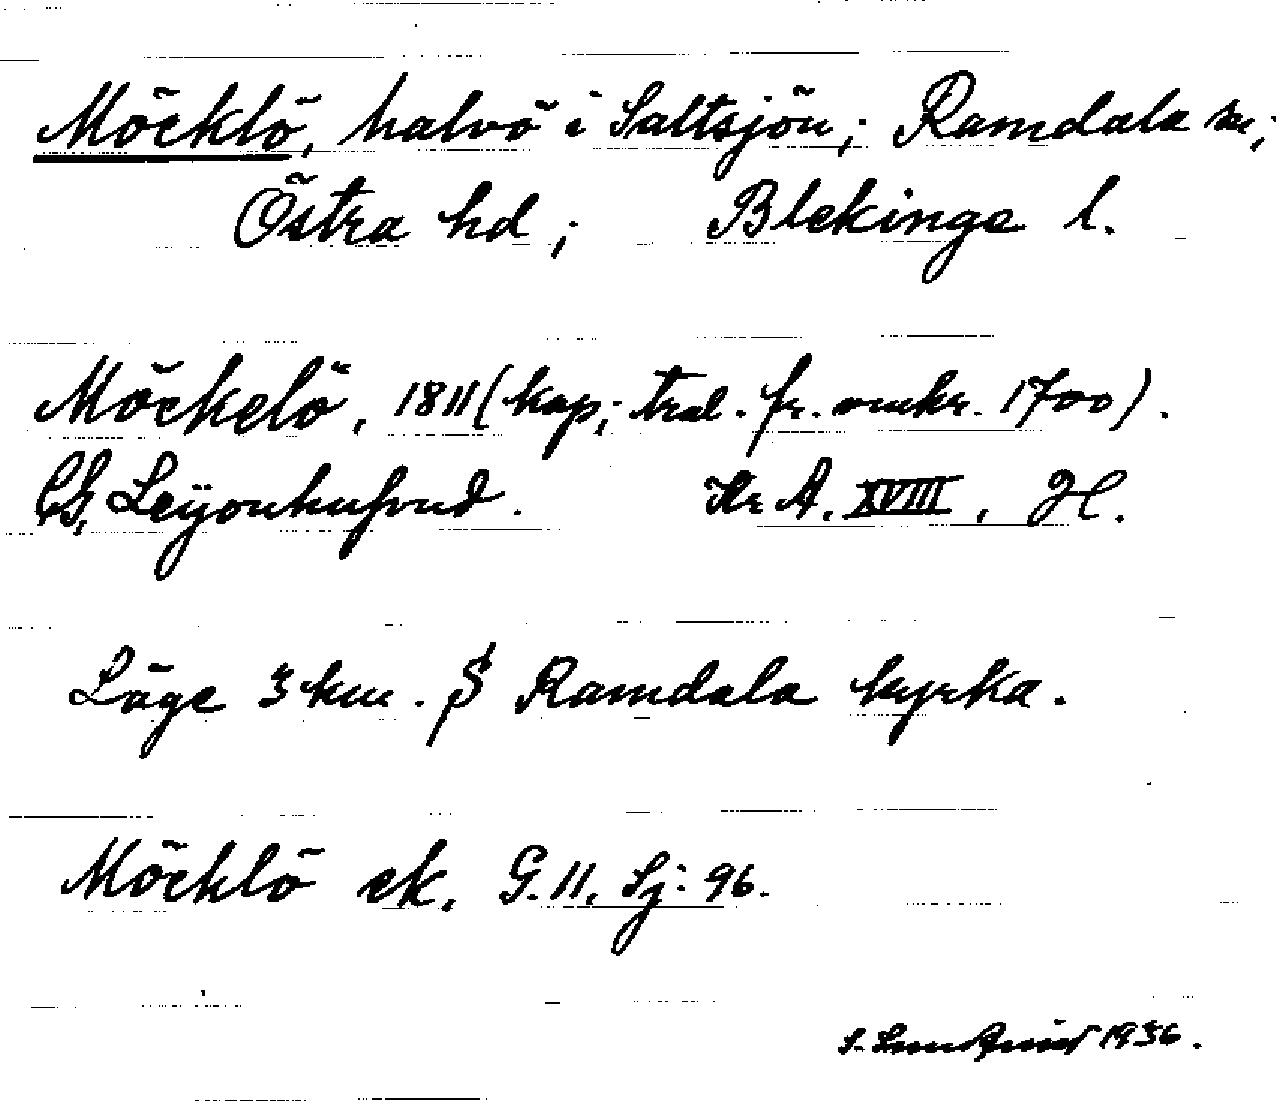 Möcklö, halvö i Saltsjön; Ramdala sn;
Östra hd; Blekinge l.
Möckelö, 1811 (kop; tral. fr. omkr. 1700).
CG, Leÿonhufvud. Kr A. XVIII, H.
Läge 3 km. S Ramdala kyrka.
Möcklö ek. G. 11, Sj: 96.
S. Lundqvist 1936.